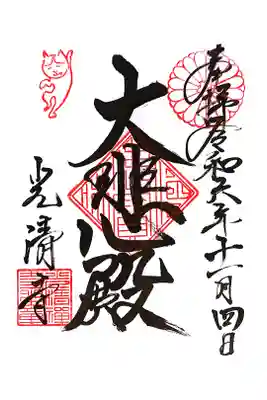 奉拝 令和六年十一月四日
大悲心殿
光清寺